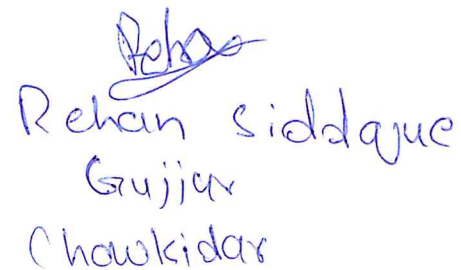 Rehan
Rehan Siddaque
Gujjur
Chowkidar